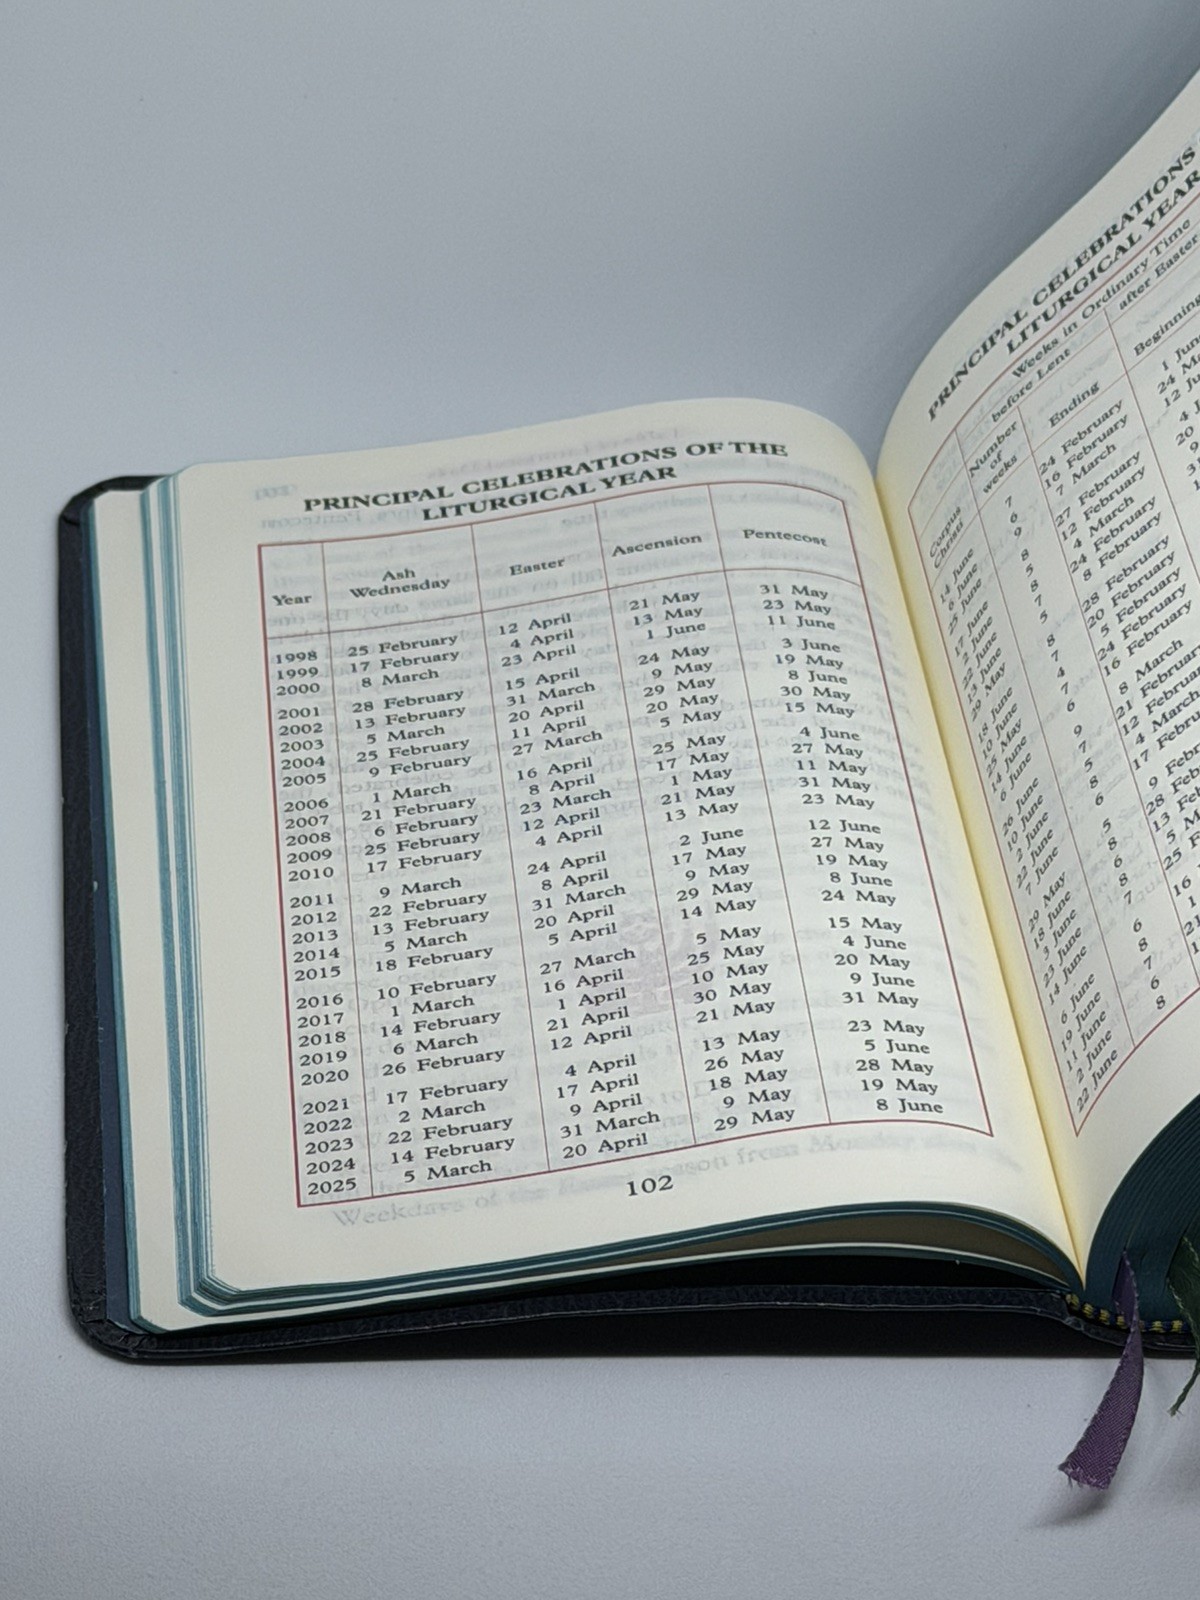 PRINCIPAL CELEBRATIONS OF THE
LITURGICAL YEAR
Year Ash Wednesday Easter Ascension Pentecost
1998 25 February 12 April 21 May 31 May
1999 17 February 4 April 13 May 23 May
2000 8 March 23 April 1 June 11 June
2001 28 February 15 April 24 May 3 June
2002 13 February 31 March 9 May 19 May
2003 5 March 20 April 29 May 8 June
2004 25 February 11 April 20 May 30 May
2005 9 February 27 March 5 May 15 May
2006 1 March 16 April 25 May 4 June
2007 21 February 8 April 17 May 27 May
2008 6 February 23 March 1 May 11 May
2009 25 February 12 April 21 May 31 May
2010 17 February 4 April 13 May 23 May
2011 9 March 24 April 2 June 12 June
2012 22 February 8 April 17 May 27 May
2013 13 February 31 March 9 May 19 May
2014 5 March 20 April 29 May 8 June
2015 18 February 5 April 14 May 24 May
2016 10 February 27 March 5 May 15 May
2017 1 March 16 April 25 May 4 June
2018 14 February 1 April 10 May 20 May
2019 6 March 21 April 30 May 9 June
2020 26 February 12 April 21 May 31 May
2021 17 February 4 April 13 May 23 May
2022 2 March 17 April 26 May 5 June
2023 22 February 9 April 18 May 28 May
2024 14 February 31 March 9 May 19 May
2025 5 March 20 April 29 May 8 June
102
PRINCIPAL CELEBRATIONS
LITURGICAL YEAR
Weeks in Ordinary Time
before Lent after Easter
Corpus Christi Number of weeks Ending Beginning
14 June 7 24 February 1 June
6 June 6 16 February 24
25 June 9 7 March 12
17 June 8 27 February 4
2 June 5 12 February 20
22 June 8 4 March 9
13 June 7 24 February
29 May 5 8 February
18 June 8 28 February
10 June 7 20 February
25 May 4 5 February
14 June 7 24 February
6 June 6 16 February
26 June 9 8 March
10 June 7 21 February
2 June 5 12 February
22 June 8 4 March
7 June 6 17
29 May 5 9
18 June 8 28
3 June 6 13
23 June 8 5
14 June 7 25
6 June 6 16
19 June 8 1
11 June 7 21
2 June 6
22 June 8